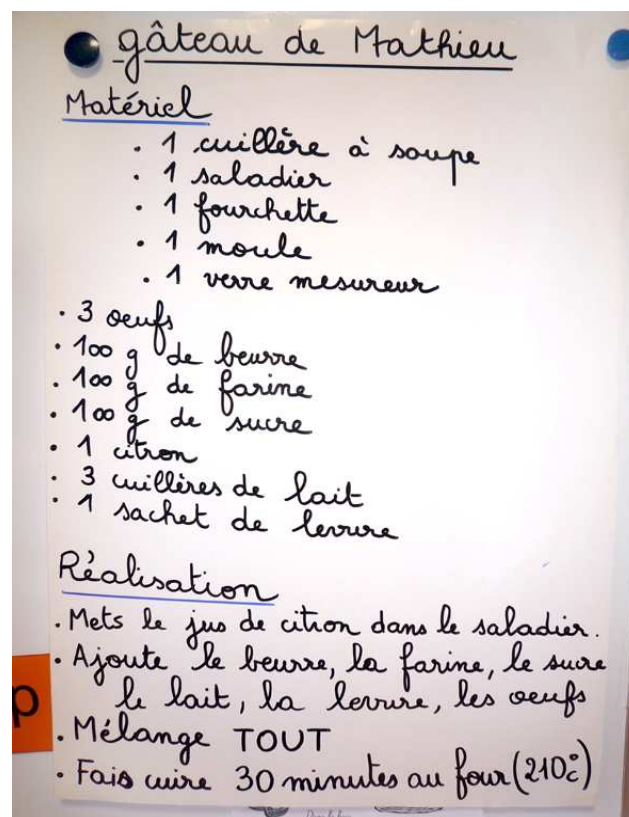 gâteau de Mathieu
Matériel
. 1 cuillère à soupe
. 1 saladier
. 1 fourchette
. 1 moule
. 1 verre mesureur
. 3 oeufs
. 100 g de beurre
. 100 g de farine
. 100 g de sucre
. 1 citron
. 3 cuillères de lait
. 1 sachet de levure
Réalisation
. Mets le jus de citron dans le saladier.
. Ajoute le beurre, la farine, le sucre
le lait, la levure, les oeufs
p
. Mélange TOUT
. Fais cuire 30 minutes au four (210°c)